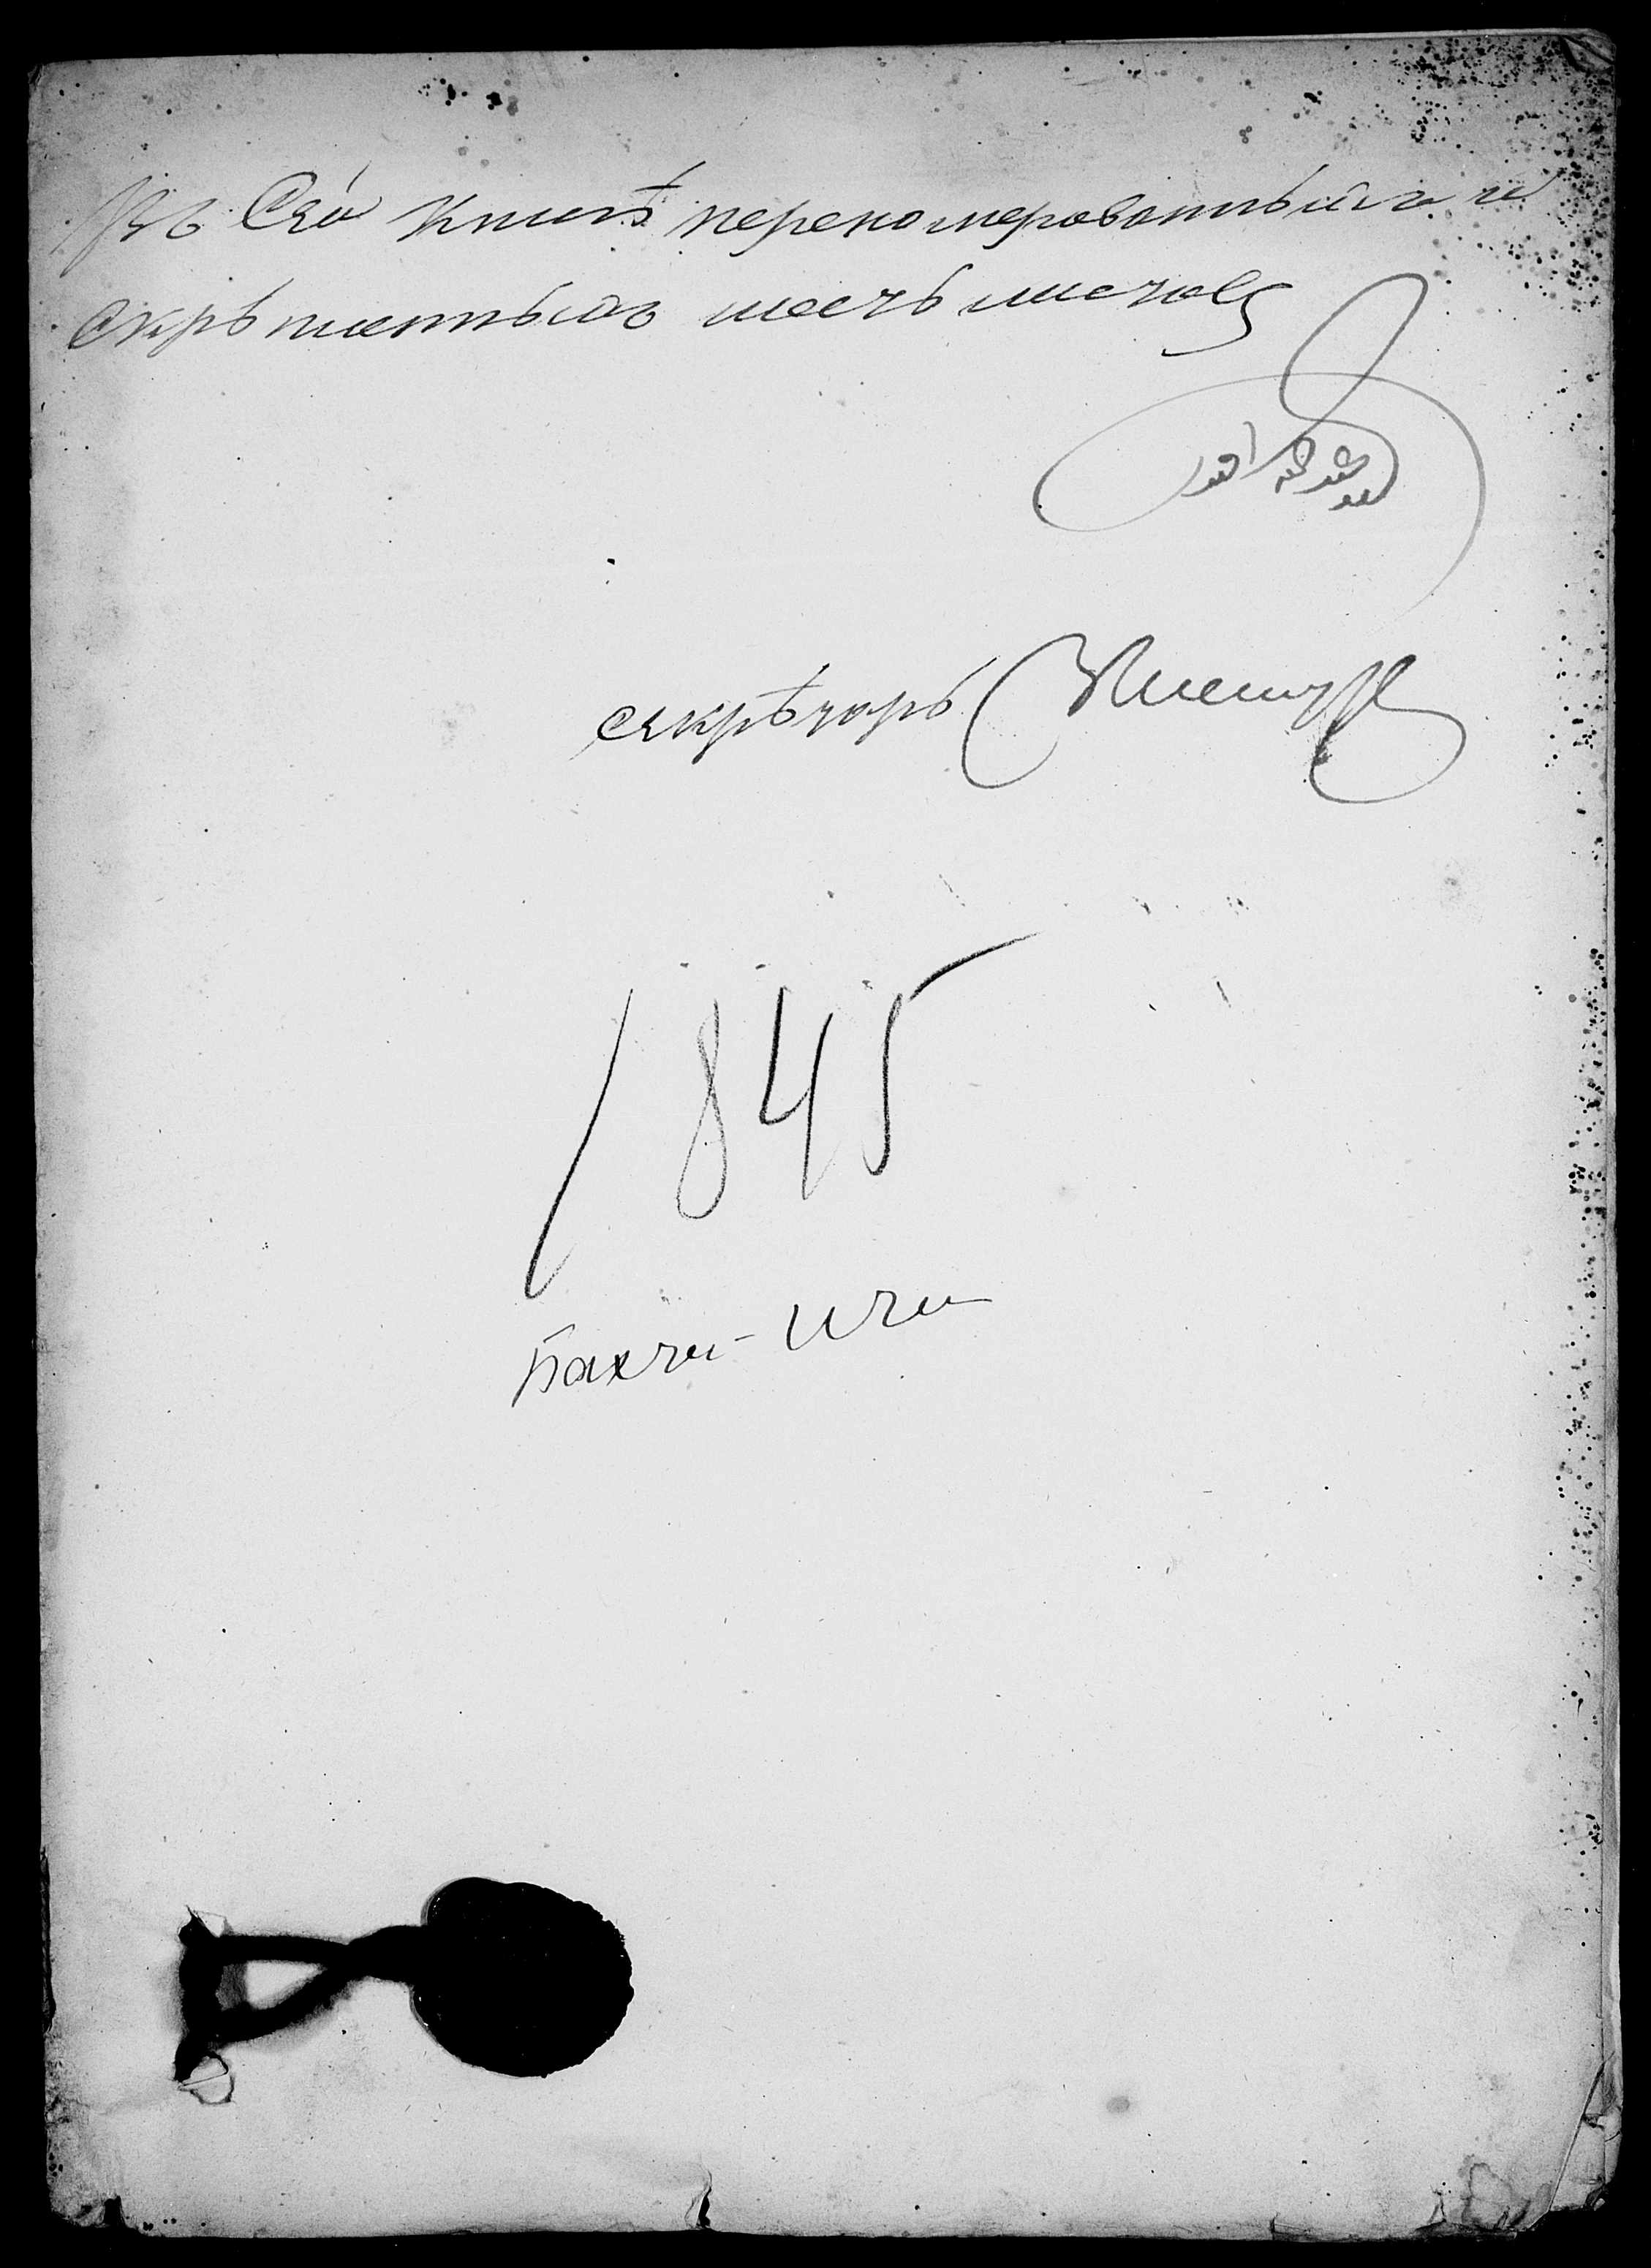 Въ Сей книгѣ переномерованныхъ и
скрѣпленныхъ шесть листовъ
секрѣтарь
1845
Бахчи-Или